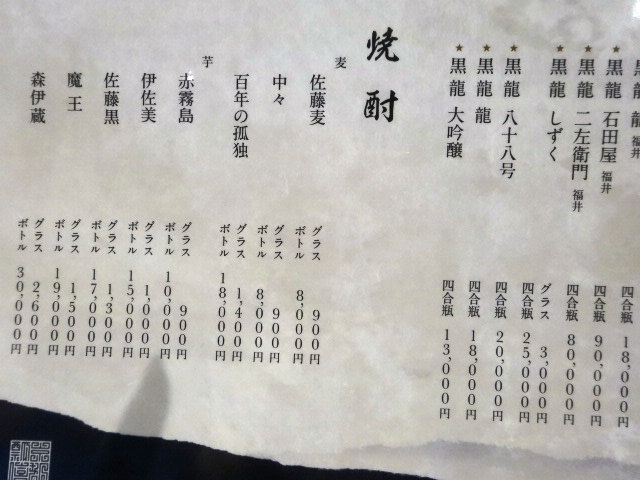 福井 四合瓶 18,000円
★黒龍 石田屋 福井 四合瓶 90,000円
★黒龍 二左衛門 福井 四合瓶 80,000円
★黒龍 しずく グラス 3,000円
四合瓶 25,000円
★黒龍 八十八号 四合瓶 20,000円
★黒龍 龍 四合瓶 18,000円
★黒龍 大吟醸 四合瓶 13,000円
焼酎
麦
佐藤麦 グラス 900円
ボトル 8,000円
中々 グラス 900円
ボトル 8,000円
百年の孤独 グラス 1,400円
ボトル 18,000円
芋
赤霧島 グラス 900円
ボトル 10,000円
伊佐美 グラス 1,000円
ボトル 15,000円
佐藤黒 グラス 1,300円
ボトル 17,000円
魔王 グラス 1,500円
ボトル 19,000円
森伊蔵 グラス 2,600円
ボトル 30,000円